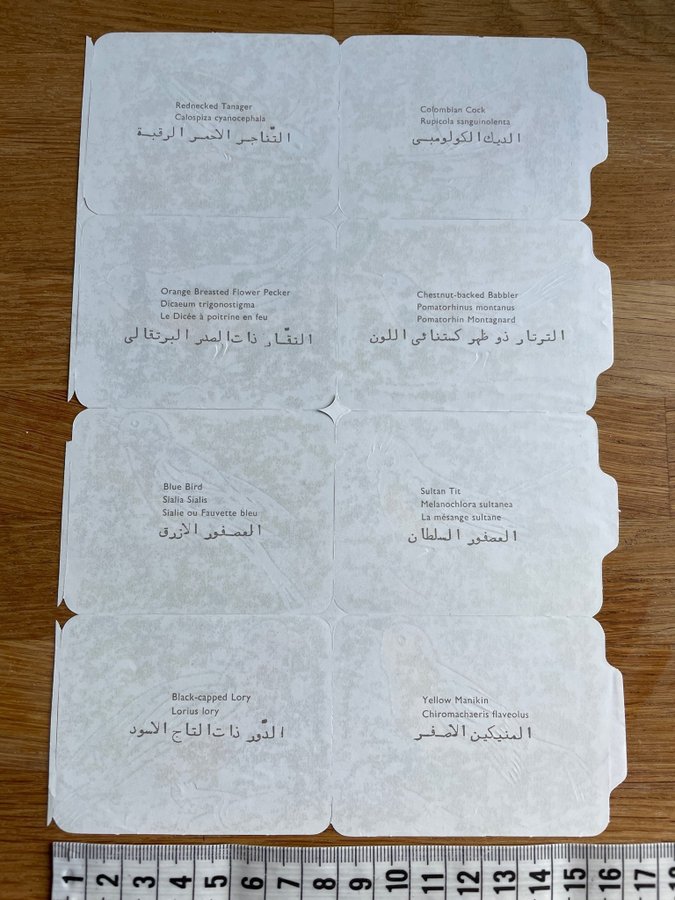 Rednecked Tanager
Calospiza cyanocephala
التّناجر الاحمر الرقبة
Colombian Cock
Rupicola sanguinolenta
الديك الكولومبى
Orange Breasted Flower Pecker
Dicaeum trigonostigma
Le Dicée à poitrine en feu
النقّار ذات الصدر البرتقالى
Chestnut-backed Babbler
Pomatorhinus montanus
Pomatorhin Montagnard
الترتار ذو ظهر كستنائى اللون
Blue Bird
Sialia Sialis
Sialie ou Fauvette bleu
العصفور الازرق
Sultan Tit
Melanochlora sultanea
La mésange sultane
العصفور السلطان
Black-capped Lory
Lorius lory
الدّور ذات التاج الاسود
Yellow Manikin
Chiromachaeris flaveolus
المنيكين الاصفر
1 2 3 4 5 6 7 8 9 10 11 12 13 14 15 16 17 18